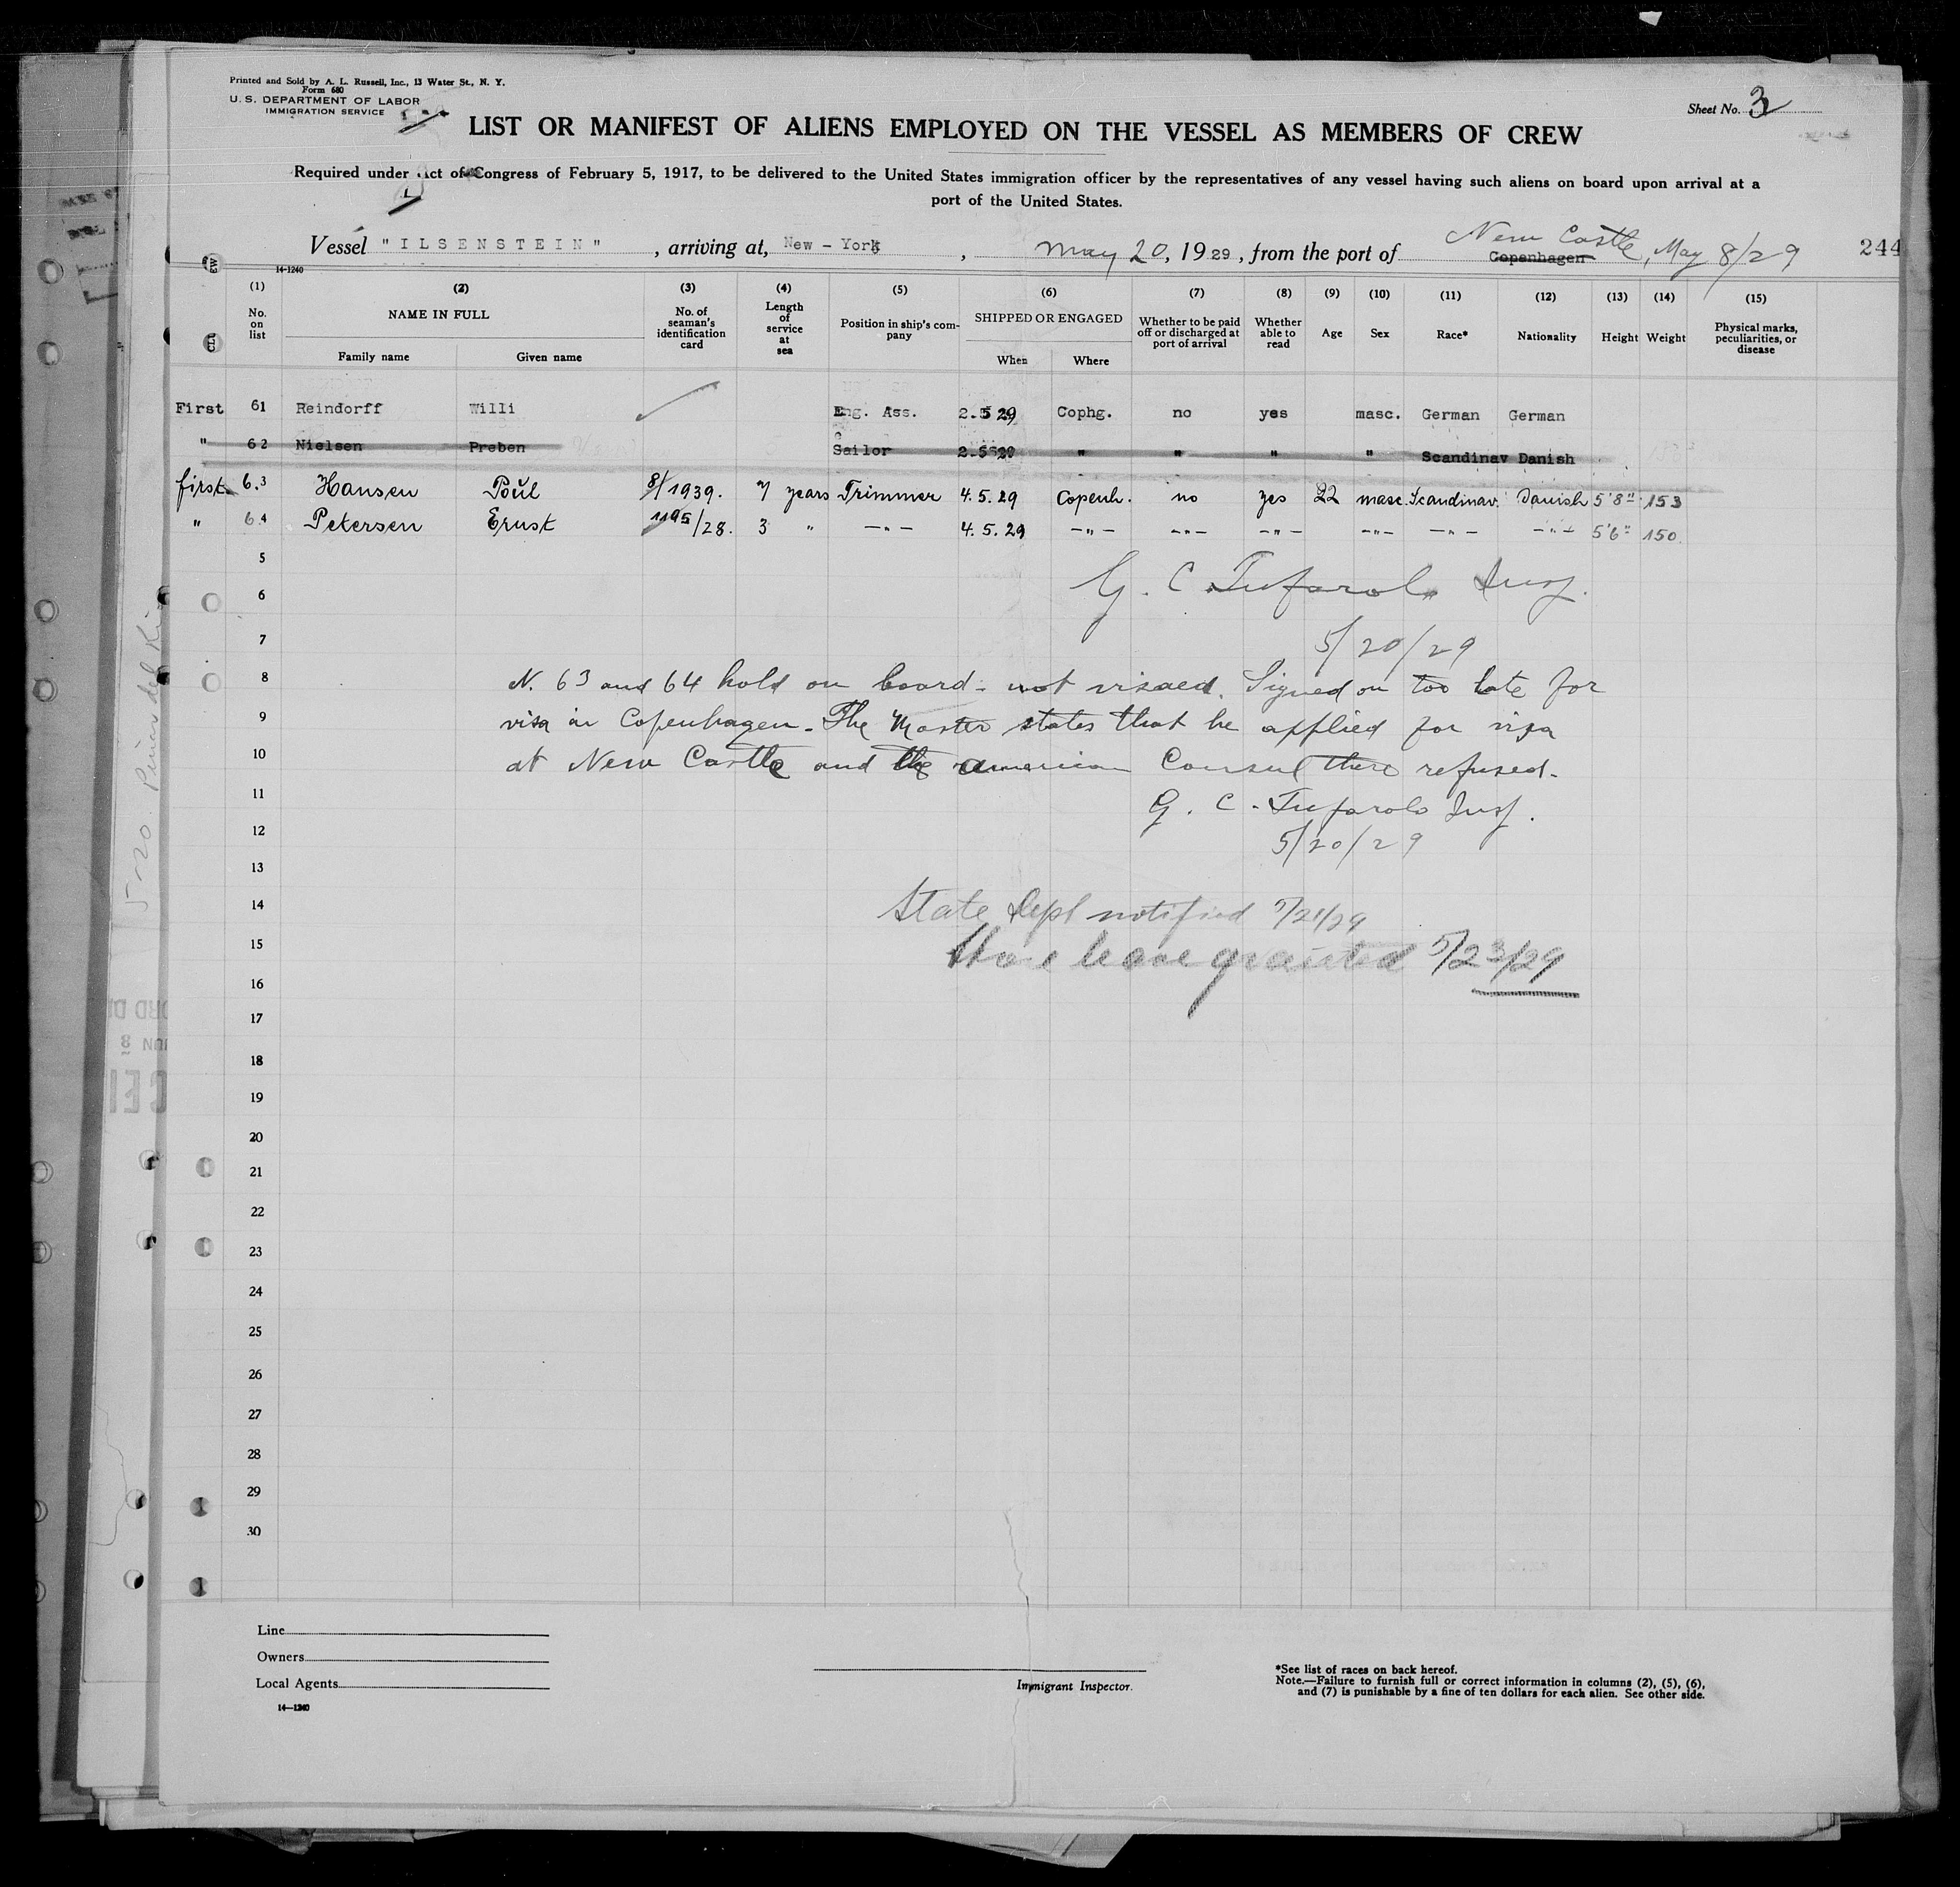 Printed and Sold by A. L. Russell, Inc., 13 Water St., N. Y.
Form 680
U. S. DEPARTMENT OF LABOR
IMMIGRATION SERVICE
Sheet No. 3
LIST OR MANIFEST OF ALIENS EMPLOYED ON THE VESSEL AS MEMBERS OF CREW
Required under Act of Congress of February 5, 1917, to be delivered to the United States immigration officer by the representatives of any vessel having such aliens on board upon arrival at a
port of the United States.
Vessel "ILSENSTEIN", arriving at, New - York, May 20, 1929, from the port of Copenhagen New Castle, May 8/29
244
14-1240
(1) (2) (3) (4) (5) (6) (7) (8) (9) (10) (11) (12) (13) (14) (15)
No. on list
NAME IN FULL
Family name Given name
No. of seaman's identification card
Length of service at sea
Position in ship's company
SHIPPED OR ENGAGED
When Where
Whether to be paid off or discharged at port of arrival
Whether able to read
Age
Sex
Race*
Nationality
Height
Weight
Physical marks, peculiarities, or disease
First 61 Reindorff Willi Eng. Ass. 2.5 29 Cophg. no yes masc. German German
" 62 Nielsen Preben Sailor 2.5 29 " " " " Scandinav Danish
first 63 Hansen Poul 8/1939. 7 years Trimmer 4.5.29 Copenh. no yes 22 masc. Scandinav. Danish 5'8" 153
" 64 Petersen Ernst 1195/28. 3 " -"- 4.5.29 -"- -"- -"- -"- -"- -"- 5'6" 150
5
6
G. C. Tufarolo Insp.
7
5/20/29
8 N. 63 and 64 hold on board - not visaed. Signed on too late for
9 visa in Copenhagen - The Master states that he applied for visa
10 at New Castle and the american Consul there refused -
11 G. C. Tufarolo Insp.
12 5/20/29
13
14 State Dept notified 5/21/29
15 Shore leave granted 5/23/29
16
17
18
19
20
21
22
23
24
25
26
27
28
29
30
Line
Owners
Local Agents
14-1240
Immigrant Inspector.
*See list of races on back hereof.
Note.—Failure to furnish full or correct information in columns (2), (5), (6),
and (7) is punishable by a fine of ten dollars for each alien. See other side.